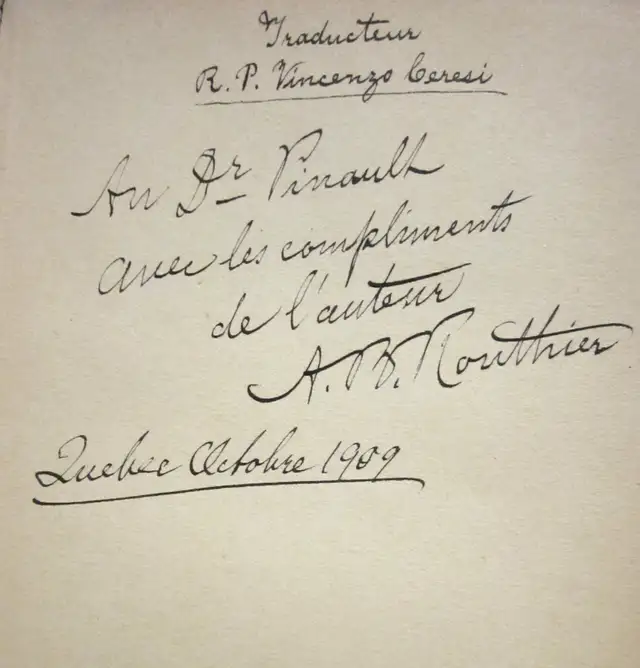 Traducteur
R. P. Vincenzo Ceresi
Au Dr Pinault
avec les compliments
de l'auteur
A. B. Routhier
Quebec Octobre 1909